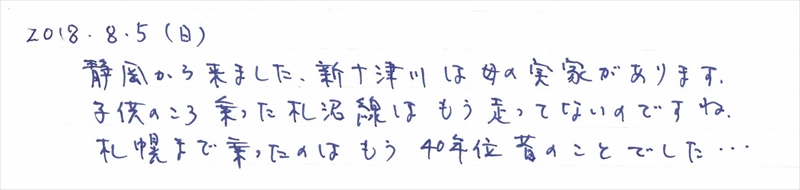 2018.8.5(日)
静岡から来ました、新十津川は母の実家があります。
子供のころ乗った札沼線はもう走ってないのですね。
札幌まで乗ったのはもう40年位昔のことでした…